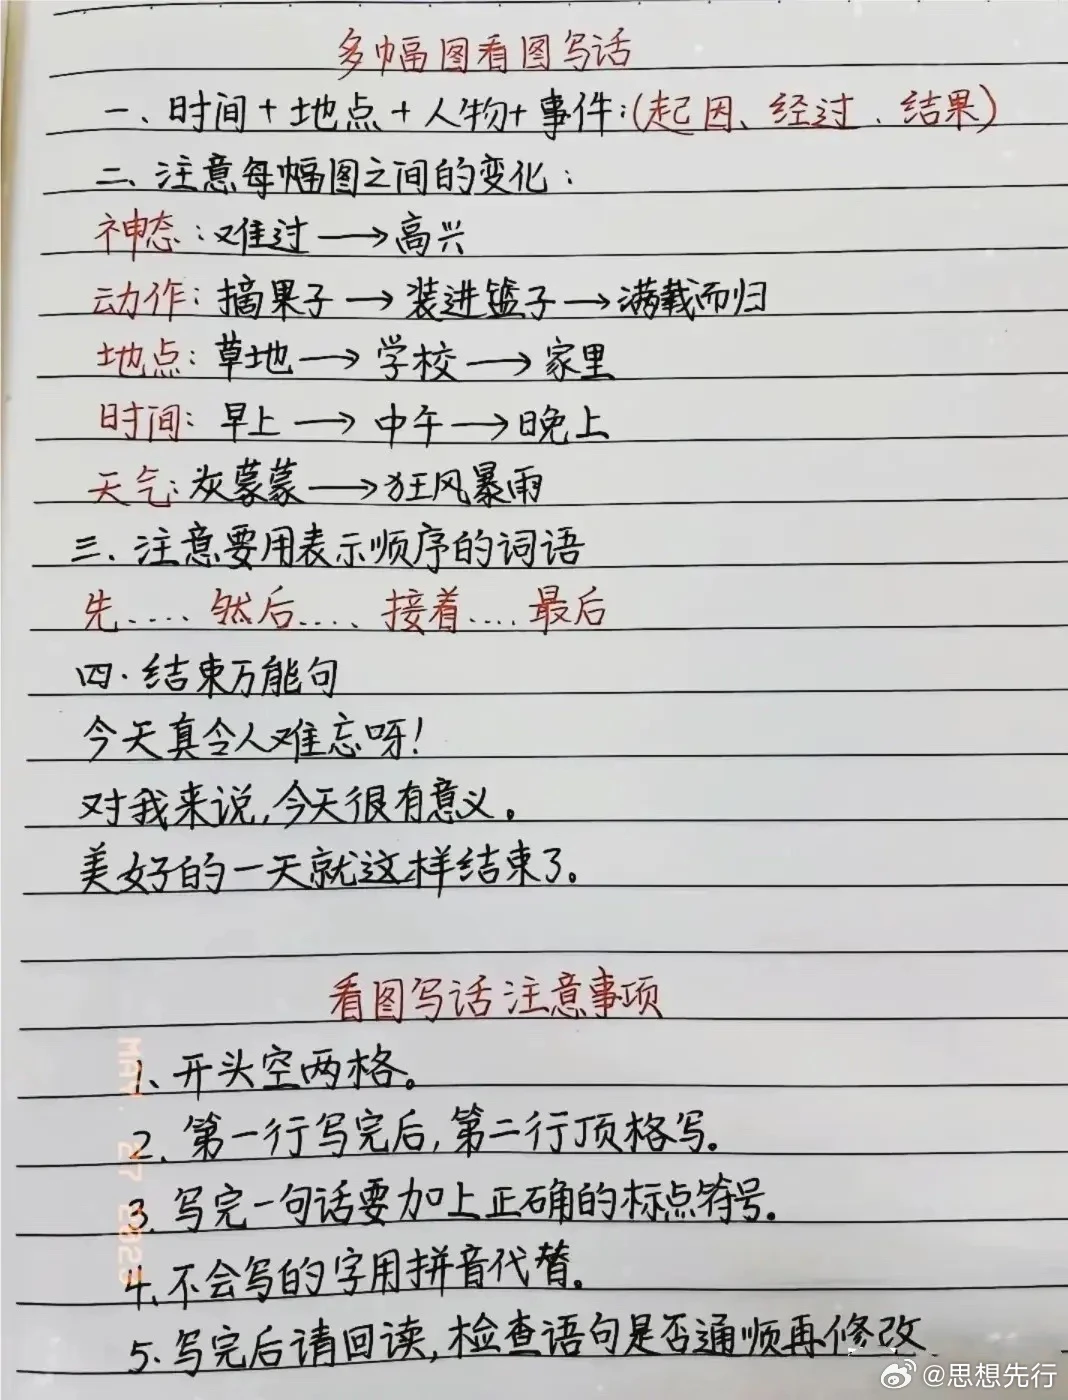 多幅图看图写话
一、时间+地点+人物+事件:(起因、经过、结果)
二、注意每幅图之间的变化:
神态:难过→高兴
动作:摘果子→装进篮子→满载而归
地点:草地→学校→家里
时间:早上→中午→晚上
天气:灰蒙蒙→狂风暴雨
三、注意要用表示顺序的词语
先....然后....、接着....最后
四.结束万能句
今天真令人难忘呀!
对我来说,今天很有意义。
美好的一天就这样结束了。
看图写话注意事项
1、开头空两格。
2、第一行写完后,第二行顶格写。
3、写完一句话要加上正确的标点符号。
4、不会写的字用拼音代替。
5、写完后请回读,检查语句是否通顺再修改.
MAY. 27 202
@思想先行